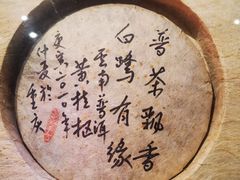 普茶飘香
白鹭有缘
云南普洱
黄桂枢
庚寅二〇一〇年
仲夏於
重庆